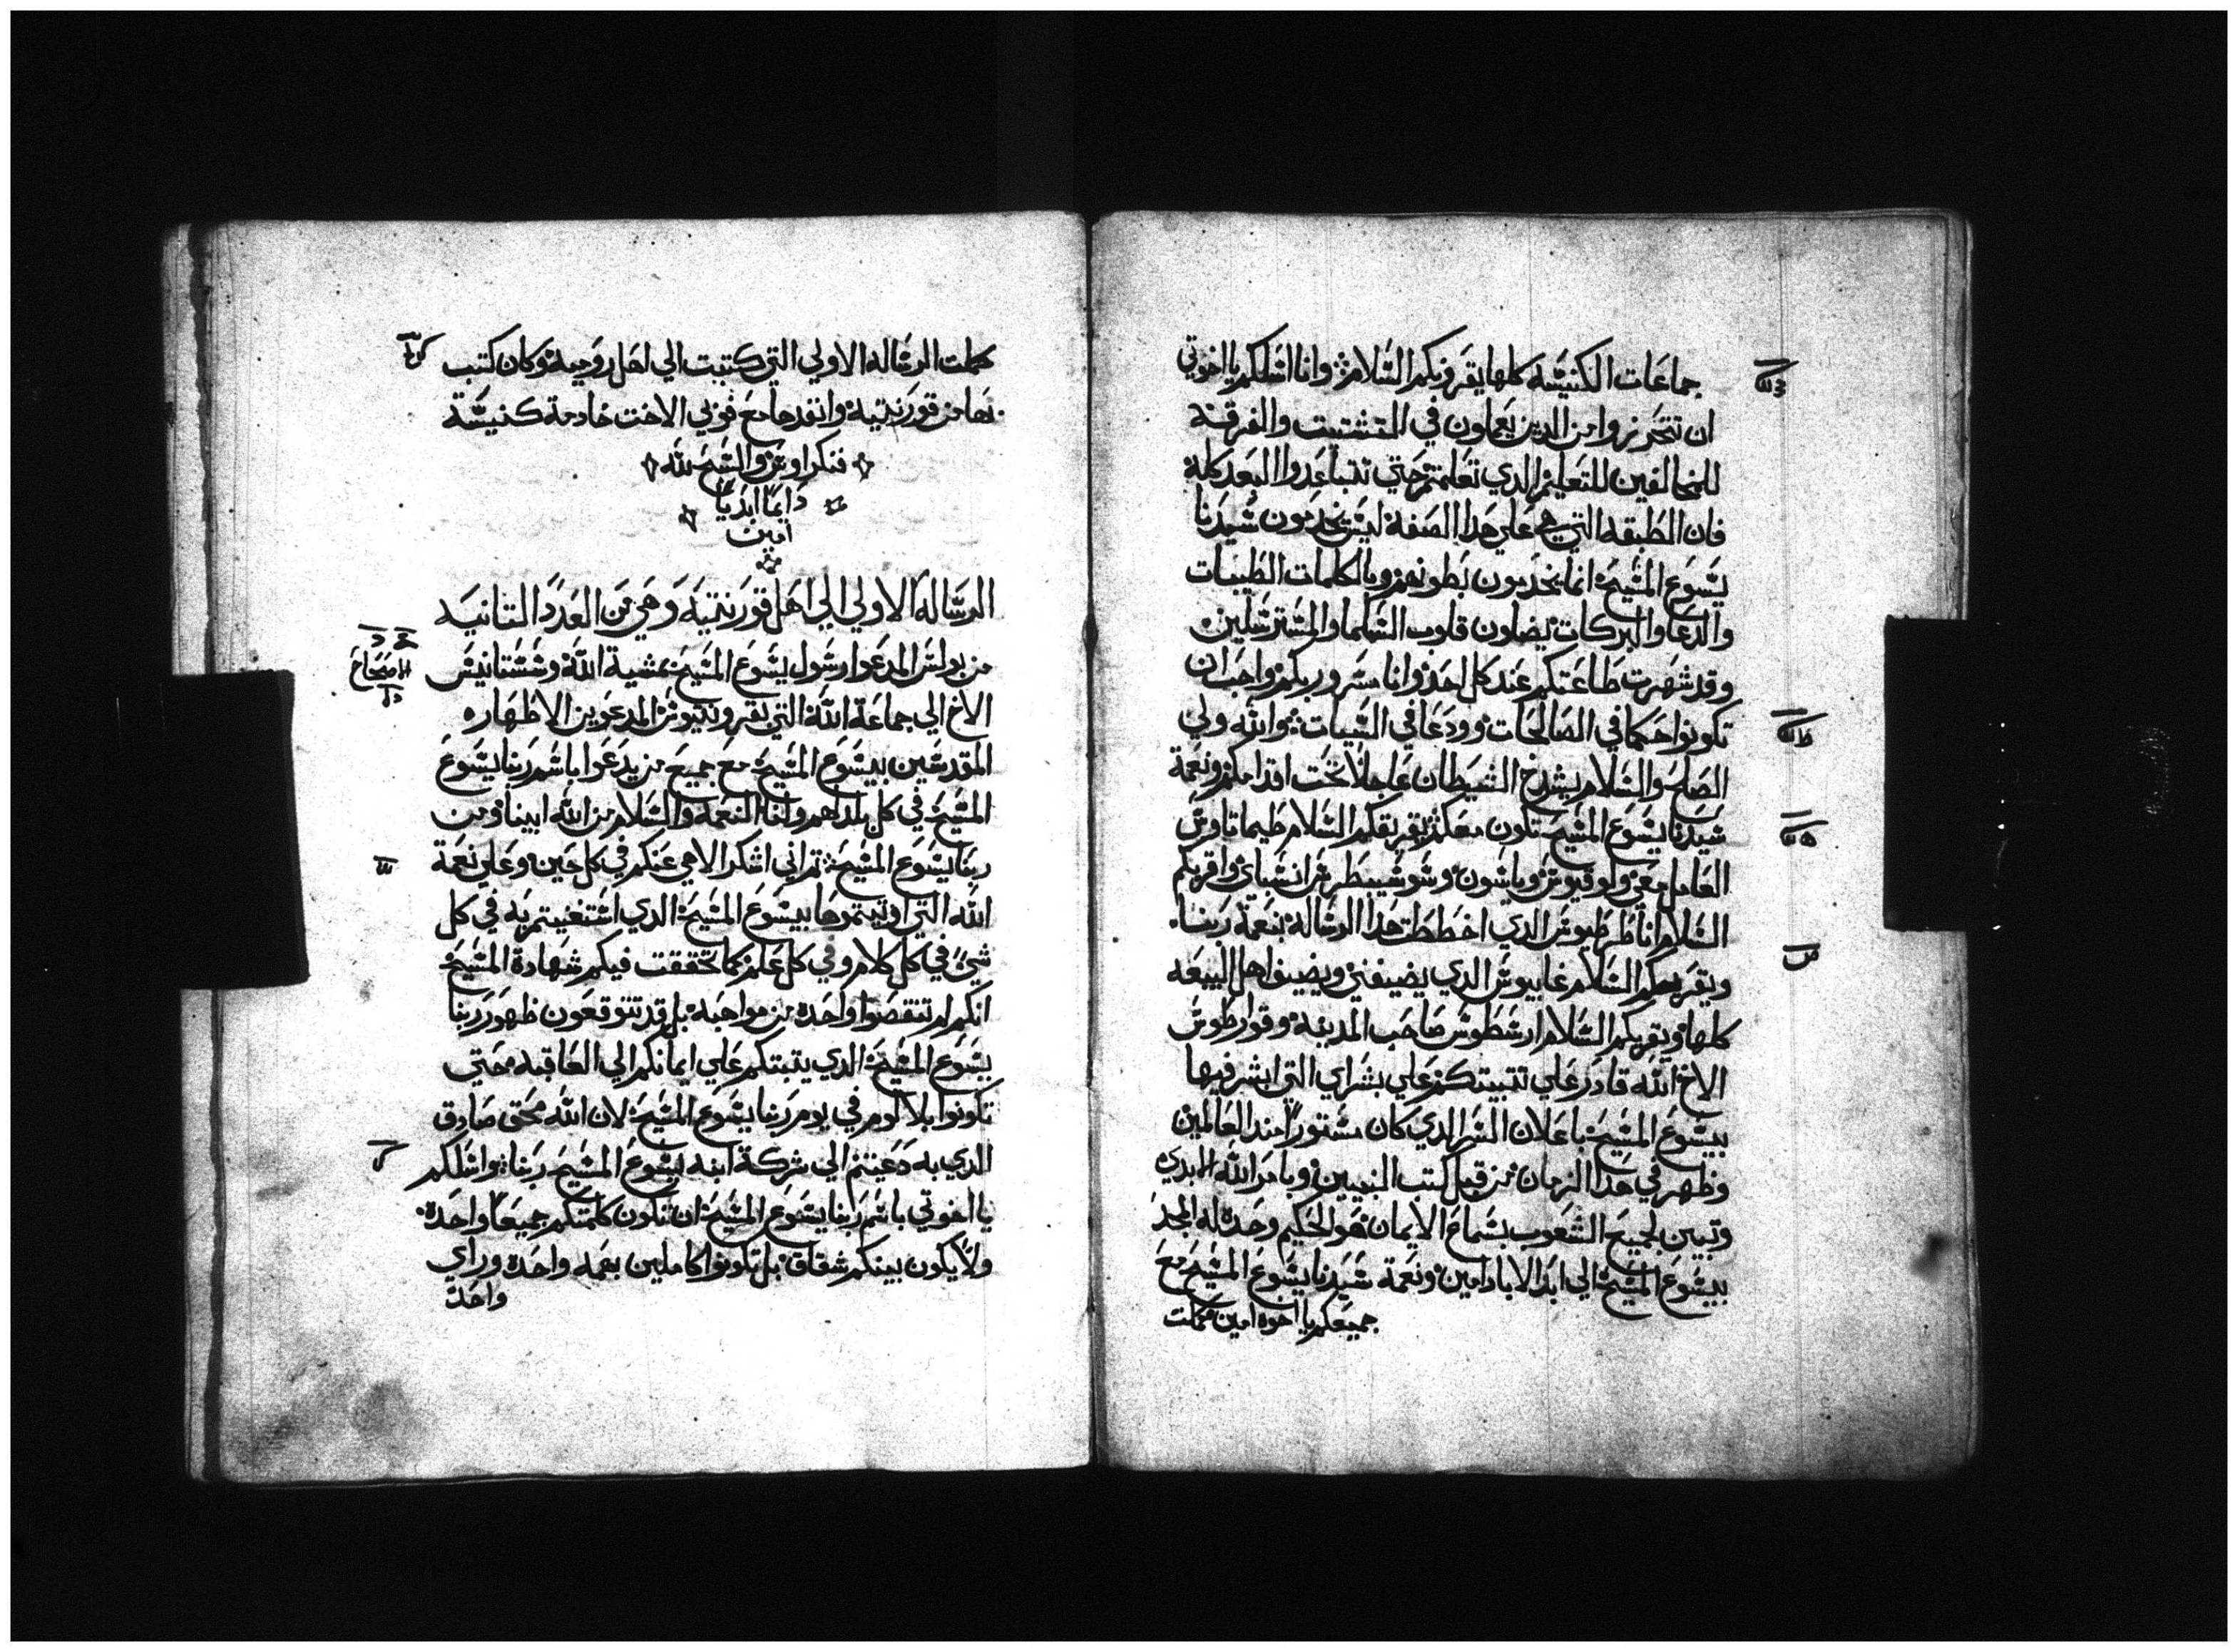 جماعات الكنيسه كلها يقرونكم السلام وانا اسلكم يا اخوتي
ان تتحرزوا من الدين يعملون في التشتيت والفرقه
للمخالفين للتعليم الدي تعلمتم حتي تتباعدوا البعد كله
فان الطبقه التي هي علي هدا الصفه ليس يخدمون سيدنا
يسوع المسيح انما يخدمون بطونهم وبالكلمات الطيبات
والدعا والبركات يضلون قلوب السلما والمسترسلين
وقد شهرت طاعتكم عند كل احد وانا مسرور بكم واحب ان
تكونوا حكما في الصالحات وودعا في السيات والله ولي
الصلح والسلام يشدخ الشيطان عاجلا تحت اقدامكم ونعمة
سيدنا يسوع المسيح تكون معكم يقريكم السلام طيماتاوس
العامل معي ولوقيوس وياسون وسوسيبطرس انسباي واقريكم
السلام انا طرطيوس الدي اخططت هدا الرساله بنعمة ربنا
ويقريكم السلام غاييوس الدي يضيفني ويضيف اهل البيعه
كلها ويقريكم السلام ارسطوس صاحب المدينه وقوارطوس
الاخ الله قادر علي تتبيتكم علي بشراي التي ابشر فيها
بيسوع المسيح باعلان السر الدي كان مستورا مند العالمين
وظهر في هدا الزمان من قبل كتب النبيين وبامر الله الابدي
وتبين لجميع الشعوب بسماع الايمان هو الحكيم وحده له المجد
بيسوع المسيح الي ابد الاباد امين ونعمة سيدنا يسوع المسيح مع
جميعكم يا اخوه امين كملت
كملت الرساله الاولي التي كتبت الي اهل روميه وكان كتب
بها من قورنتيه وانفدها مع فوبي الاخت خادمة كنيسة
قنكراوس والسبح لله
دايما ابديا
امين
الرساله الاولي الي اهل قورنتيه وهي من العدد التانيه
من بولس المدعوا رسول يسوع المسيح بمشية الله وسستانيس
الاخ الي جماعة الله التي بقورنتيوس المدعوين الاطهاره
المقدسين بيسوع المسيح مع جميع من يدعوا باسم ربنا يسوع
المسيح في كل بلد لهم ولنا النعمه والسلام من الله ابينا ومن
ربنا يسوع المسيح تم اني اشكر الاهي عنكم في كل حين وعلي نعمة
الله التي اوتيتموها بيسوع المسيح الدي استغنيتم به في كل
شي في كل كلام وفي كل علم كما تحققت فيكم شهادة المسيح
انكم لم تنقصوا واحده من مواهبه بل قد تتوقعون ظهور ربنا
يسوع المسيح الدي يتبتكم علي ايمانكم الي العاقبه حتي
تكونوا بلا لوم في يوم ربنا يسوع المسيح لان الله محق صادق
الدي به دعيتم الي شركة ابنه يسوع المسيح ربنا واسلكم
يا اخوتي باسم ربنا يسوع المسيح ان تكون كلمتكم جميعا واحده
ولا يكون بينكم شقاق بل تكونوا كاملين بهمه واحده وراي
واحد